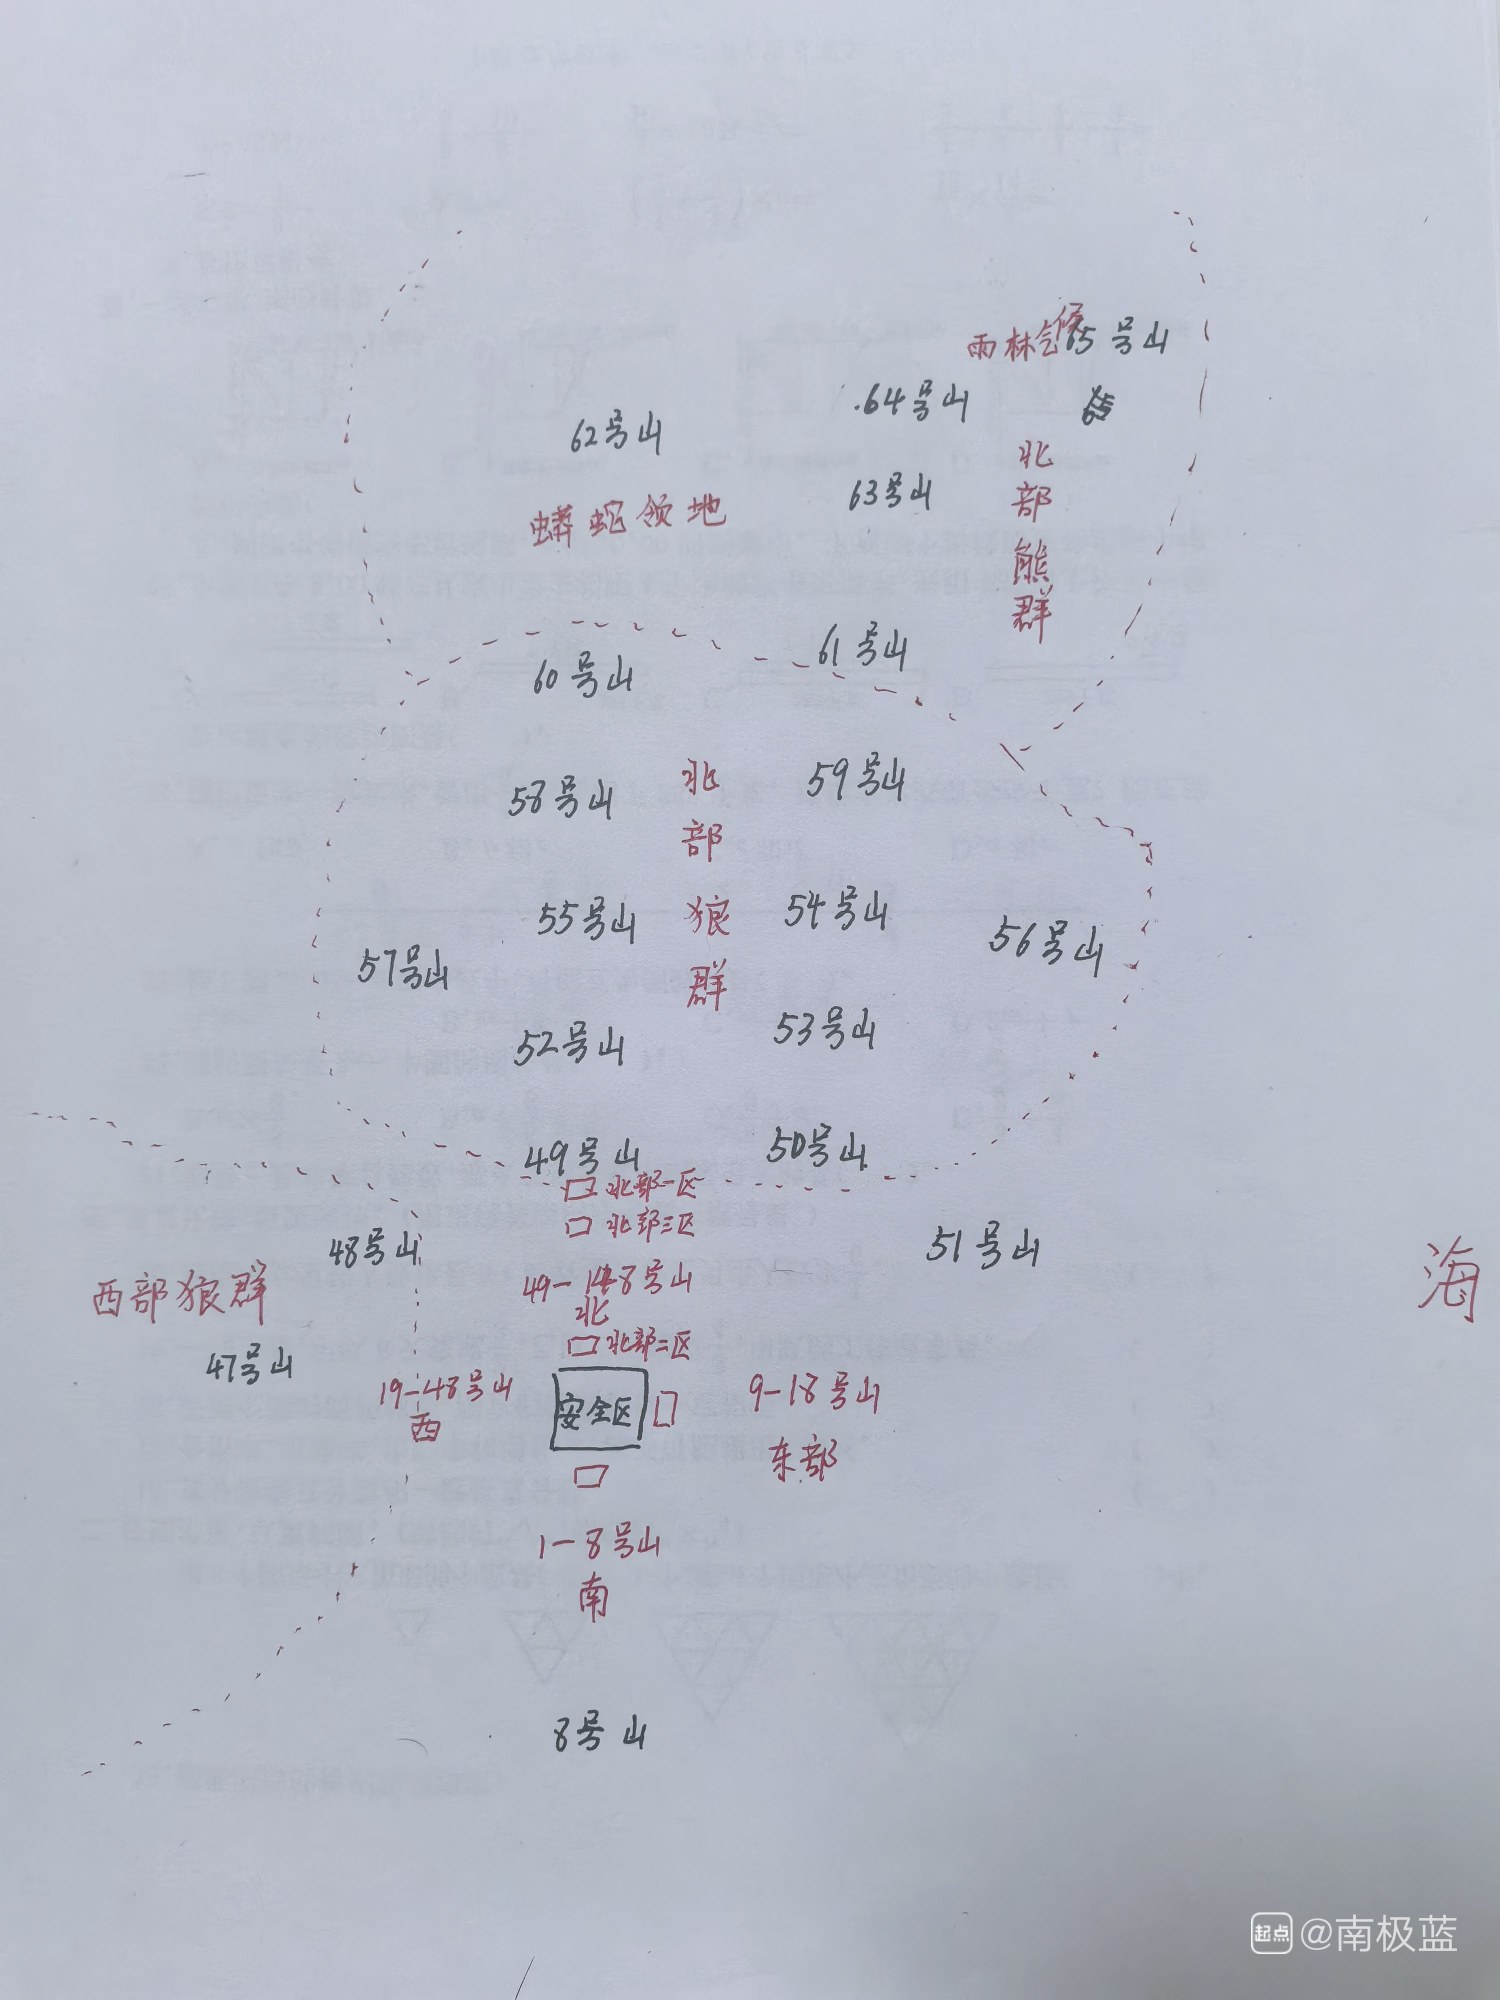 雨林气候
65号山
64号山
62号山
63号山
北部熊群
蟒蛇领地
61号山
60号山
59号山
58号山
北部狼群
54号山
55号山
56号山
57号山
53号山
52号山
50号山
49号山
北部一区
北部三区
48号山
51号山
西部狼群
49-148号山
北
北部二区
海
47号山
19-48号山
西
安全区
9-18号山
东部
1-8号山
南
8号山
起点@南极蓝